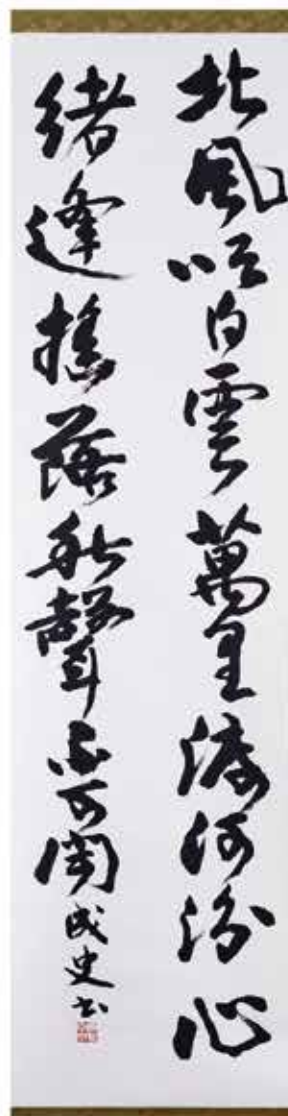 北風吹白雲萬里渡河汾心
緒逢搖落秋聲不可聞成史书